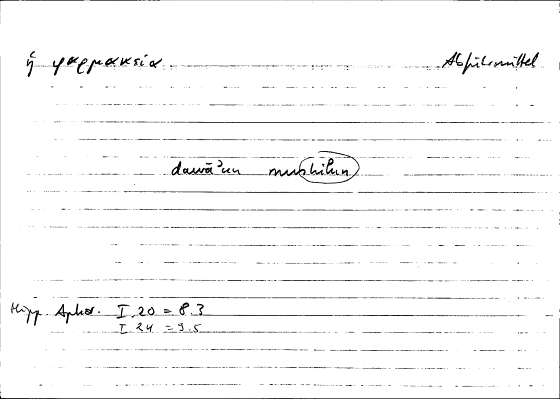 ἡ φαρμακεία. Abführmittel
dawāʾun mushilun
Hipp. Aphor. I 20 = 8.3
I 24 = 9.5